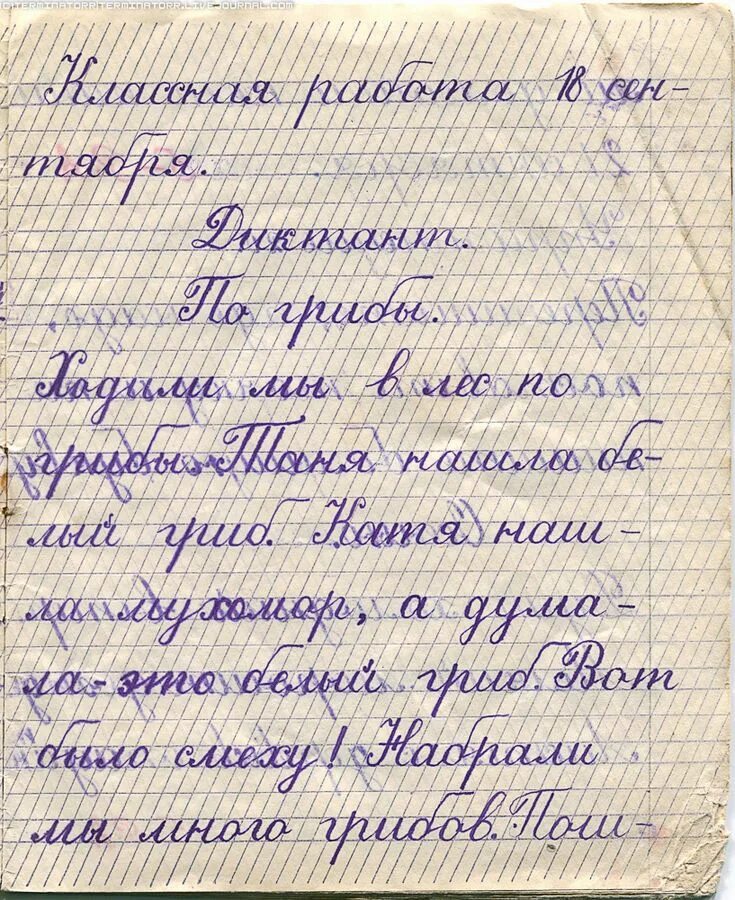 Классная работа 18 сен-
тября.
Диктант.
По грибы.
Ходили мы в лес по
грибы. Таня нашла бе-
лый гриб. Катя наш-
ла мухомор, а дума-
ла - это белый гриб. Вот
было смеху! Набрали
мы много грибов. Пош-